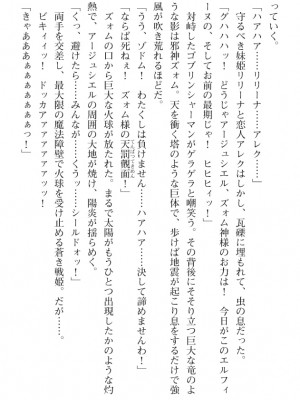 っていく。
「ハアハア……リリーナ……アレク……」
　守るべき妹姫リリーナと恋人アレクはしかし、瓦礫に埋もれて、虫の息だった。
「グハハハッ！　どうじゃアージュシエル、ズォム神様のお力は！　今日がこのエルフィ
ーヌの、そしてお前の最期じゃ！　ヒヒヒィッ！」
　対峙したゴブリンシャーマンがゲラゲラと嘲笑う。その背後にそそり立つ巨大な竜のよ
うな影は邪神ズォム。天を衝く塔のような巨体で、歩けば地震が起こり息をするだけで強
風が吹き荒れるほどだ。
「ううう、ゾドム！　わたくしは負けません……ハアハア……決して諦めませんわ！」
「ならば死ねぇ！　ズォム様の天罰覿面！」
　ズォムの口から巨大な火球が放たれた。まるで太陽がもうひとつ出現したかのような灼
熱で、アージュシエルの周囲の大地が焼け、陽炎が揺らめく。
「くっ、避けたら……みんなが……くうっ……シールドォッ！」
　両手を交差し、最大限の魔法障壁で火球を受け止める蒼き戦姫。だが……。
　ビキィィッ！　ドッカアァァァァァァッッ！
「きゃあああぁぁぁぁぁぁっ！」